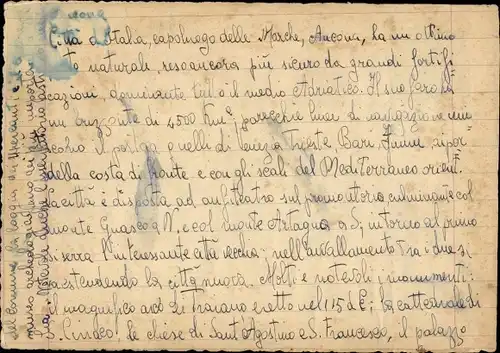 Città d'Italia, capoluogo delle Marche, Ancona, ha un ottimo
to naturale, reso ancora più sicuro da grandi fortifi
cazioni, dominante tutto il medio Adriatico. Il suo faro ha
un orizzonte di 4500 Kmq. parecchie linee di navigazione unis
cono il porto a quelli di Venezia Trieste Bari, Fiume, ai por
della costa di fronte e con gli scali del Mediterraneo orient.
La città è disposta ad anfiteatro sul promontorio, culminante col
monte Guasco a N. e col monte Astagno a S, intorno al primo
si serra l'interessante città vecchia; nell'avvallamento tra i due si
va estendendo la città nuova. Molti e notevoli i monumenti:
il magnifico arco di Traiano eretto nel 115 d.C; la cattedrale di
S. Ciriaco; le chiese di Sant'Agostino e S. Francesco, il palazzo
del Comune, la loggia dei Mercanti e un
museo archeologico dei più importanti